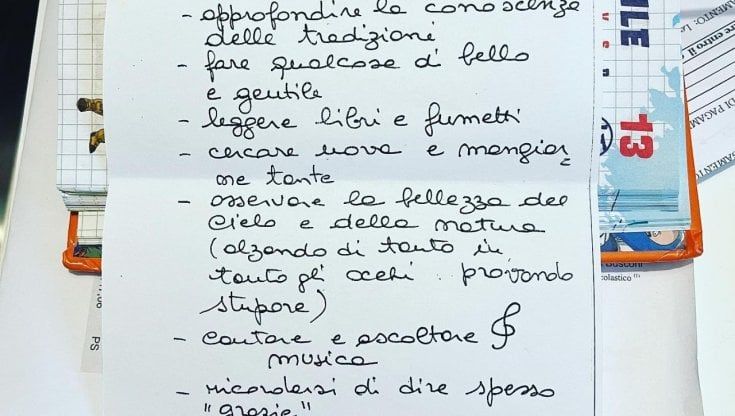 - approfondire la conoscenza
delle tradizioni
- fare qualcosa di bello
e gentile
- leggere libri e fumetti
- cercare uova e mangiar
ne tante
- osservare la bellezza del
cielo e della natura
(alzando di tanto in
tanto gli occhi .. provando
stupore)
- cantare e ascoltare
musica
- ricordarsi di dire spesso
"grazie"
13
PS
colastico